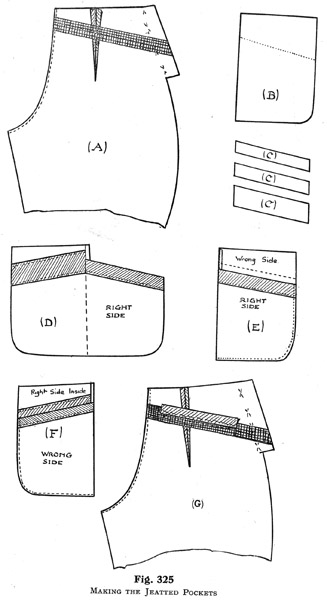 (A)
(B)
(C)
(C)
(C)
(D)
RIGHT
SIDE
Wrong Side
RIGHT
SIDE
(E)
Right Side Inside
(F)
WRONG
SIDE
(G)
Fig. 325
MAKING THE JEATTED POCKETS